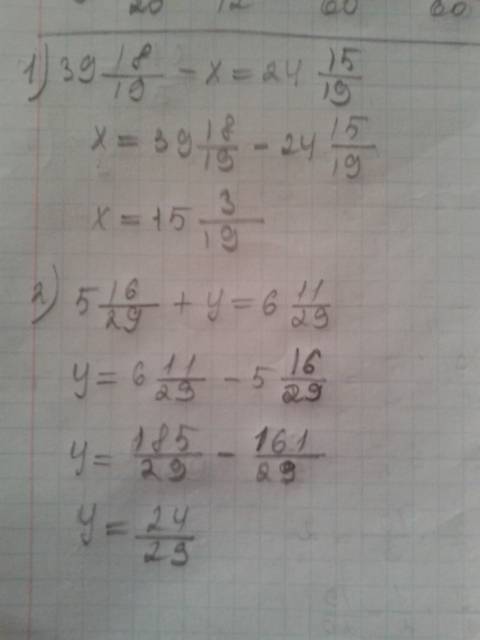 20 12 60 60
1) 39 18/19 - x = 24 15/19
x = 39 18/19 - 24 15/19
x = 15 3/19
2) 5 16/29 + y = 6 11/29
y = 6 11/29 - 5 16/29
y = 185/29 - 161/29
y = 24/29